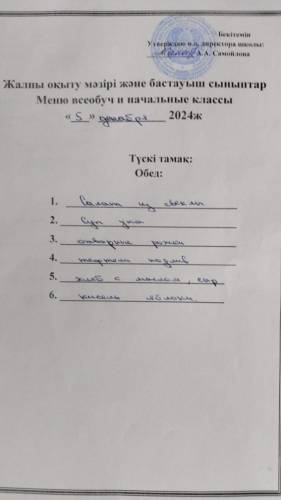 Бекітемін
Утверждаю и.о. директора школы:
А.А. Самойлова
Жалпы оқыту мәзірі және бастауыш сыныптар
Меню всеобуч и начальные классы
«5» декабря 2024ж
Түскі тамақ:
Обед:
1. Салат из свеклы
2. Суп уха
3. отварные рожки
4. тефтели подлив
5. хлеб с маслом, сыр
6. кисель яблоки